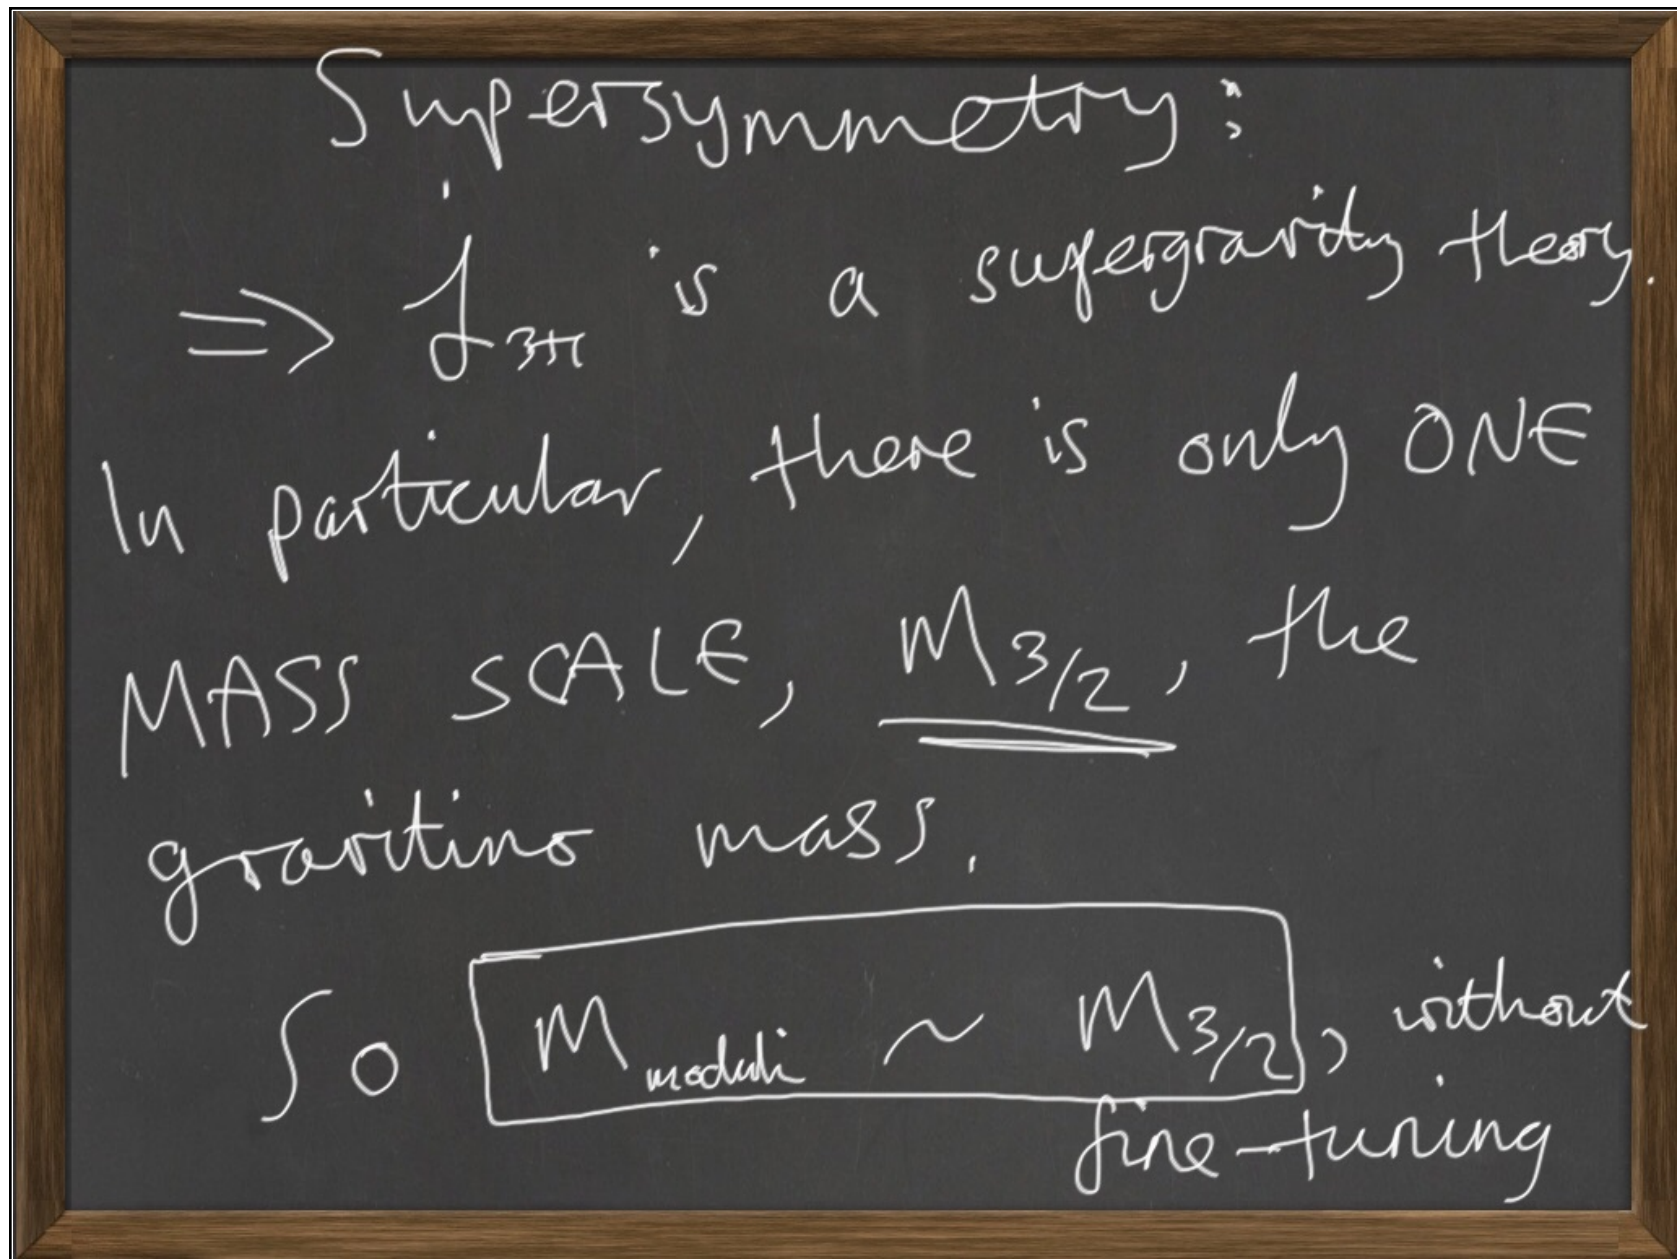 Supersymmetry:
⇒ ℒ₃₊₁ is a supergravity theory.
In particular, there is only ONE
MASS SCALE, M₃/₂, the
gravitino mass.
So M_moduli ~ M₃/₂, without
fine-tuning